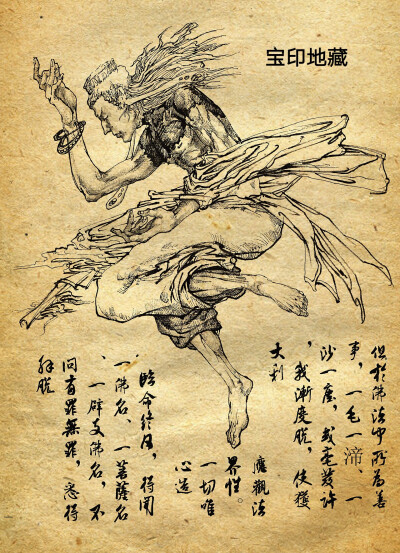 宝印地藏
但於佛法中所為善
事，一毛一渧、一
沙一塵，或毫髮許
，我漸度脫，使獲
大利
應觀法
界性。
一切唯
心造
臨命終日，得聞
一佛名、一菩薩名
、一辟支佛名，不
問有罪無罪，悉得
解脫